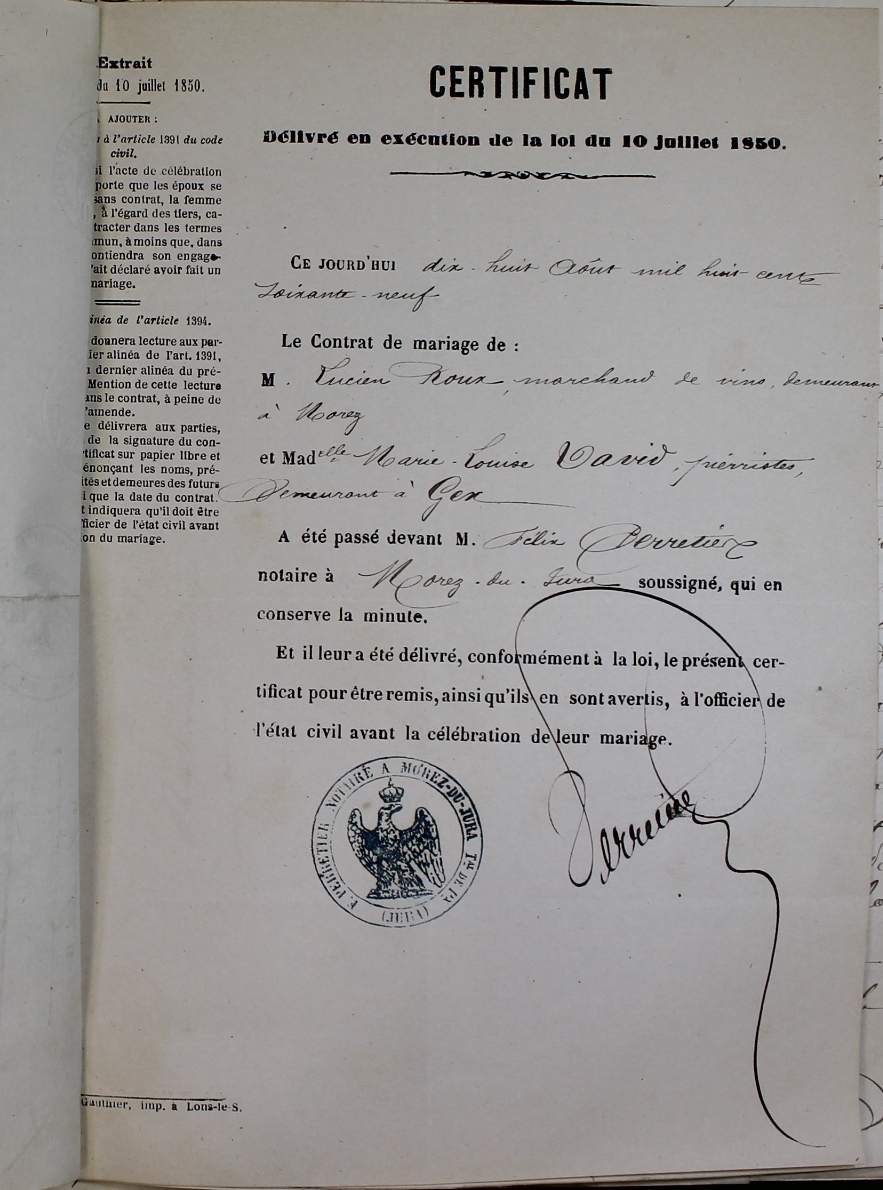 Extrait
du 10 juillet 1850.
AJOUTER :
à l'article 1391 du code
civil.
l'acte de célébration
porte que les époux se
sans contrat, la femme
, à l'égard des tiers, ca-
tracter dans les termes
mun, à moins que, dans
ontiendra son engage-
'ait déclaré avoir fait un
mariage.
inéa de l'article 1394.
donnera lecture aux par-
ier alinéa de l'art. 1391,
dernier alinéa du pré-
Mention de cette lecture
ans le contrat, à peine de
'amende.
e délivrera aux parties,
de la signature du con-
tificat sur papier libre et
énonçant les noms, pré-
ités et demeures des futurs
que la date du contrat.
t indiquera qu'il doit être
ficier de l'état civil avant
on du mariage.
Gauthier, imp. à Lons-le-S.
CERTIFICAT
Délivré en exécution de la loi du 10 juillet 1850.
CE JOURD'HUI dix-huit Août mil huit cent
soixante-neuf
Le Contrat de mariage de :
M. Lucien Roux, marchand de vins, demeurant
à Morez
et Mad^elle Marie-Louise David, pierristes,
demeurant à Gex
A été passé devant M. Félix Perretier
notaire à Morez-du-Jura soussigné, qui en
conserve la minute.
Et il leur a été délivré, conformément à la loi, le présent cer-
tificat pour être remis, ainsi qu'ils en sont avertis, à l'officier de
l'état civil avant la célébration de leur mariage.
F. PERRETIER NOTAIRE A MOREZ-DU-JURA
(JURA)